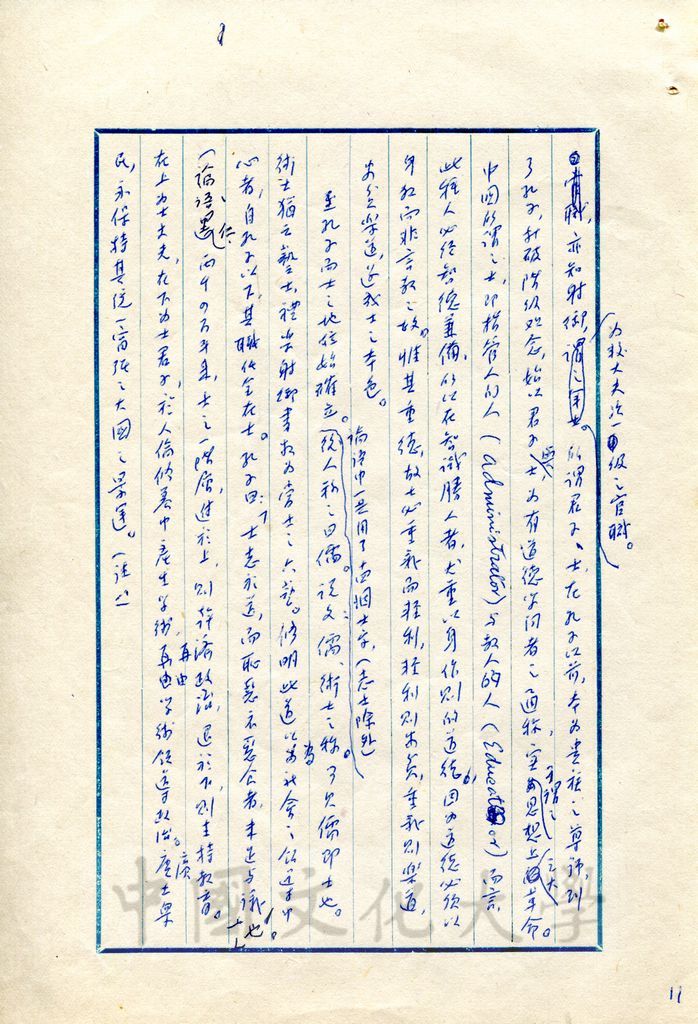 為較大夫次一級之官職。
亦知射御,謂之士。所謂君子、士在孔子以前,本為貴族之尊稱,到
了孔子,打破階級觀念,始以君子與士為有道德學問者之通稱,實可謂之思想上之大革命。
中國所謂之士,即指管人的人(administrator)與教人的人(Educator)而言
此種人必須智德兼備,所以在智識勝人者,尤重以身作則的道德,因為道德必須以
身教而非言教之故。惟其重德,故士必重義而輕利,輕利則安貧,重義則樂道,
安貧樂道,遂成士之本色。
論語中一共用了十四個士字,(志士除外)
至孔子而士之地位始確立。後人稱之曰儒。說文:儒、術士之稱。可見儒即士也。
術士猶云藝士,禮樂射御書數為當士之六藝。修明此道以為社會之領導中
心者,自孔子以下,其職任全在士。孔子曰:「士志於道,而恥惡衣惡食者,未足與議也」。
(論語里仁)兩千四百年來,士之一階層,進於上,則幹濟政治,退於下,則主持教育。
在上為士大夫,在下為士君子,於人倫修養中產生學術,再由學術領導政治。廣土眾
民,永保持其統一富強之大國之景運。(註一)
11
中國文化大學